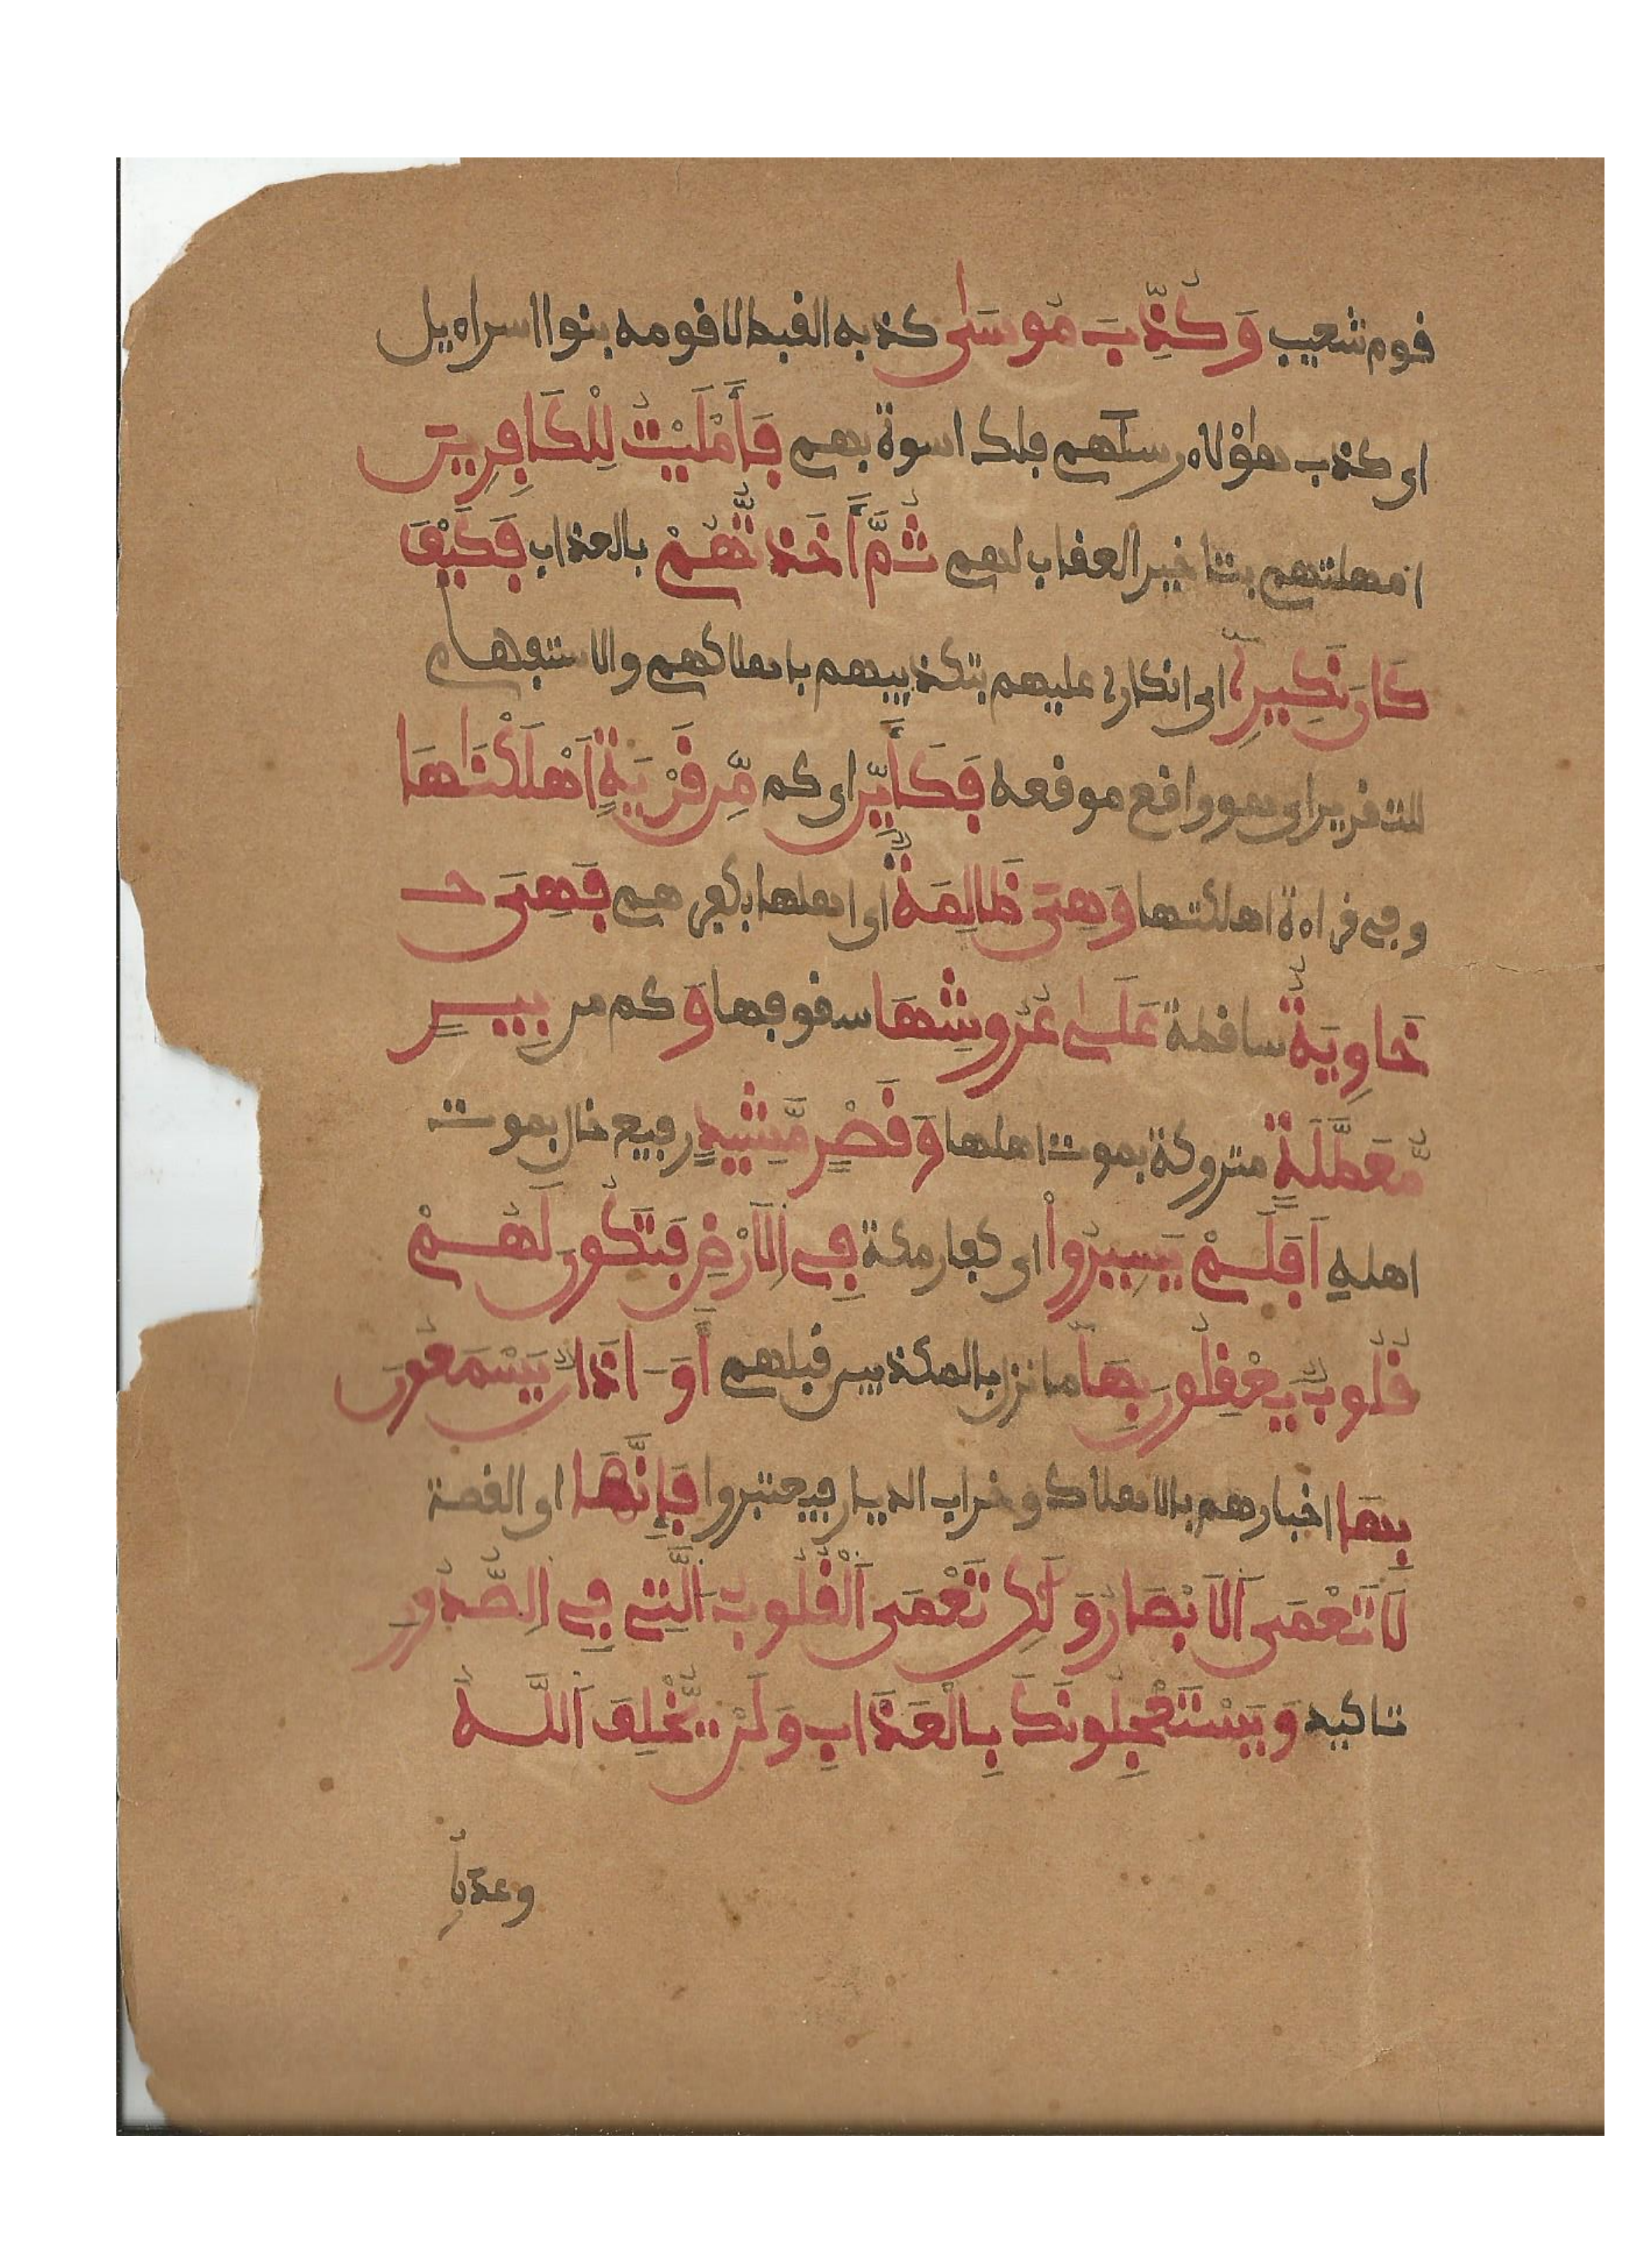 قوم شعيب وَكُذِّبَ مُوسَىٰ كذبه القبط لا قومه بنوا اسراءيل
اى كذب هؤلاء رسلهم فلك اسوة بهم فَأَمْلَيْتُ لِلْكَافِرِينَ
امهلتهم بتاخير العقاب لهم ثُمَّ أَخَذتُّهُمْ بالعذاب فَكَيْفَ
كَانَ نَكِيرِۦ اى انكارى عليهم بتكذيبهم باهلاكهم والاستفهام
للتقرير اى هو واقع موقعه فَكَأَيِّن اى كم مِّن قَرْيَةٍ اَهْلَكْنَٰهَا
وفى قراءة اهلكتها وَهِىَ ظَالِمَةٌ اى اهلها بكفرهم فَهِىَ خـ
خَاوِيَةٌ ساقطة عَلَىٰ عُرُوشِهَا سقوفها وَ كم من بِيسٍ
مُّعَطَّلَةٍ متروكة بموت اهلها وَقَصْرٍ مَّشِيدٍ رفيع خال بموت
اهلهِ اَفَلَمْ يَسِيرُواْ اى كفار مكة فِى اِلَارْضِ فَتَكُونَ لَهُمْ
قُلُوبٌ يَعْقِلُونَ بِهَا ما نزل بالمكذبين قبلهم أَوَ اذَانٌ يَسْمَعُونَ
بِهَا اخبارهم بالاهلاك وخراب الديار فيعتبروا فَإِنَّهَا اى القصة
لَا تَعْمَى اَلَابْصَٰرُ وَلَٰكِن تَعْمَى اَلْقُلُوبُ اَلَّتِى فِى اِلصُّدُورِ
تاكيد وَيَسْتَعْجِلُونَكَ بِالْعَذَابِ وَلَنْ يُّخْلِفَ اَللَّهُ